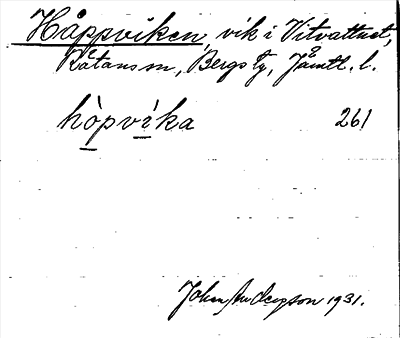 Håppviken, vik i Vitvattnet,
Rätans sn, Bergs tg, Jämtl. l.
hòpvíka 261
John Anderson 1931.